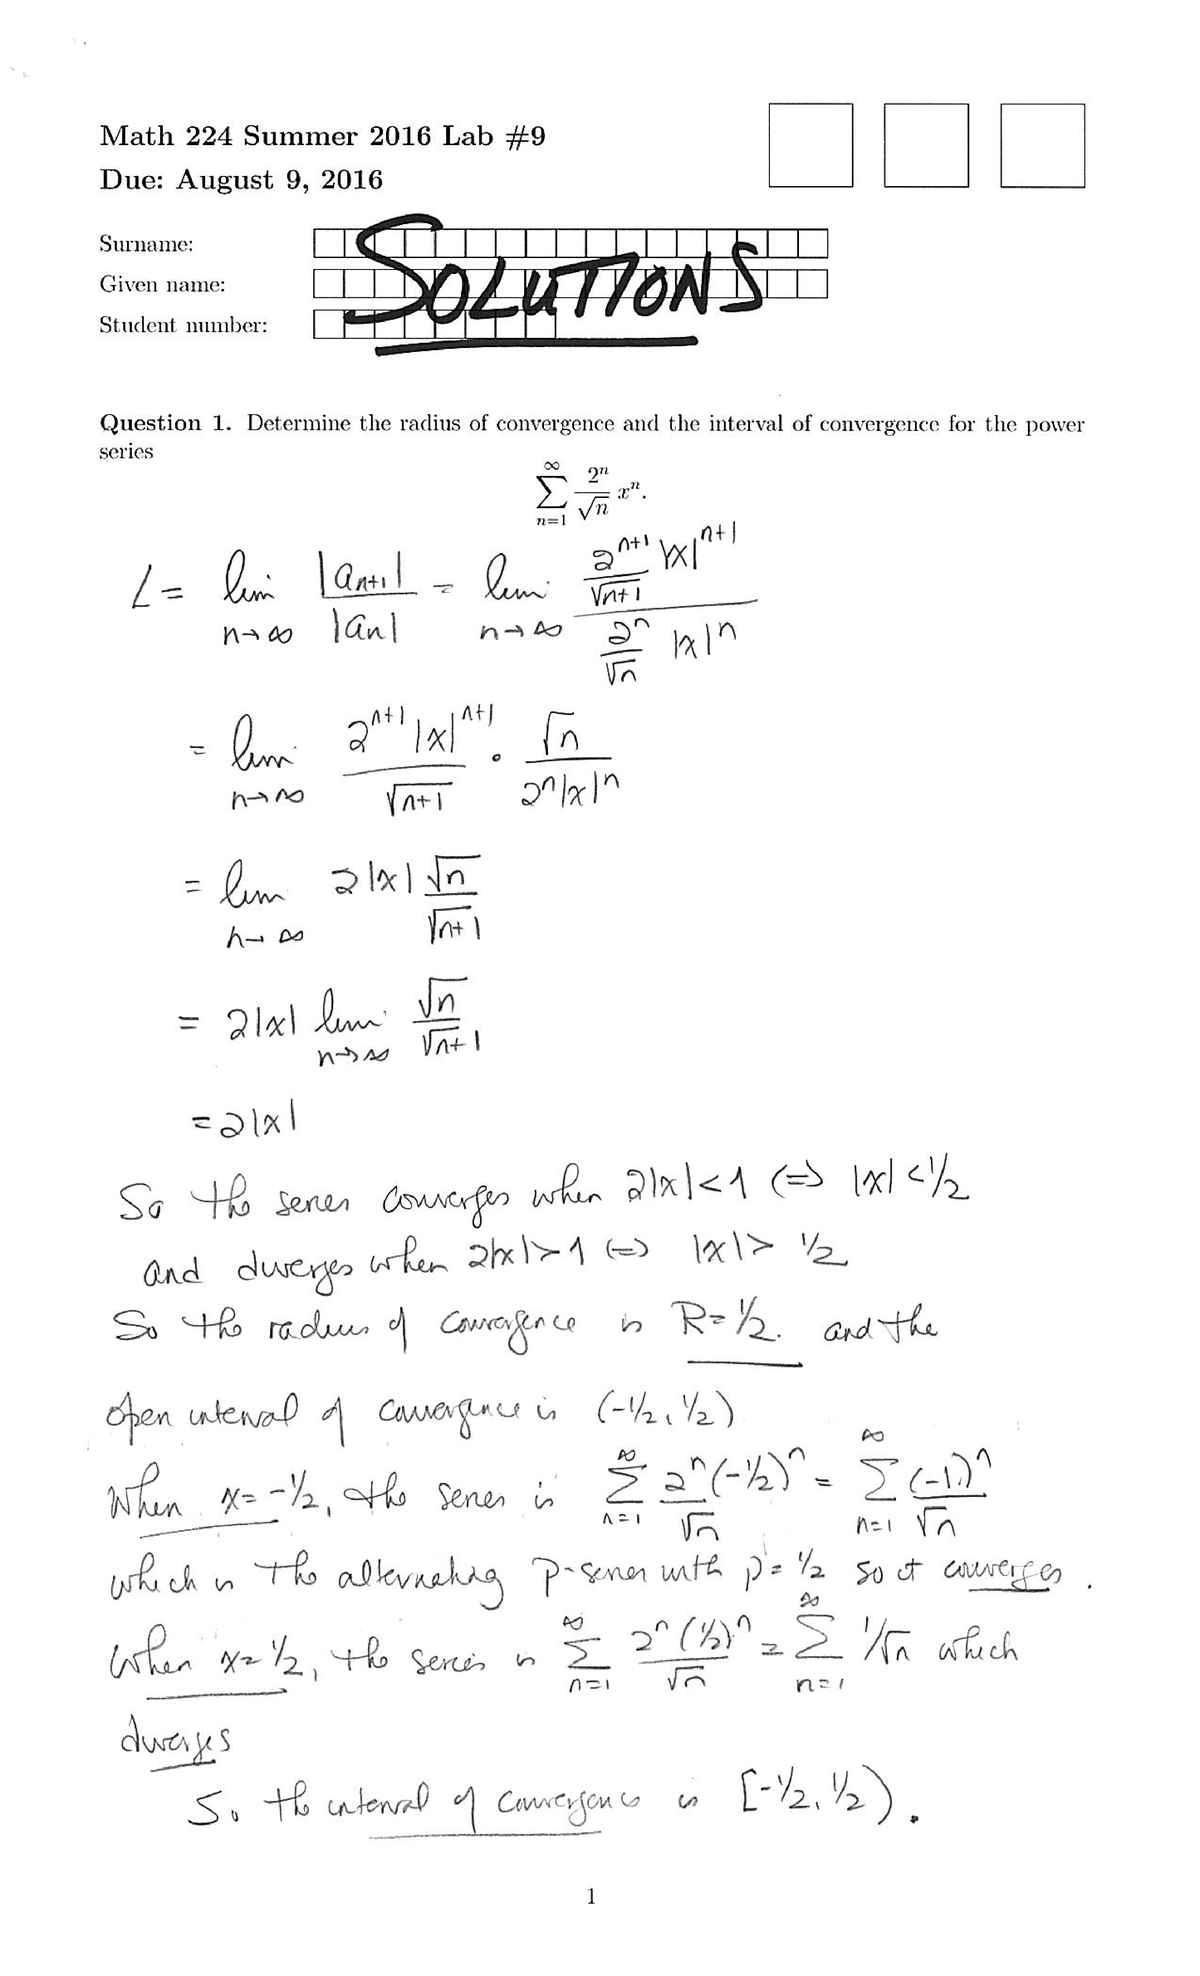 Math 224 Summer 2016 Lab #9
Due: August 9, 2016
Surname:
Given name:
Student number:
SOLUTIONS
Question 1. Determine the radius of convergence and the interval of convergence for the power
series
∑_{n=1}^{∞} 2^n/√n x^n.
L = lim_{n→∞} |a_{n+1}|/|a_n| = lim_{n→∞} (2^{n+1}/√(n+1) |x|^{n+1})/(2^n/√n |x|^n)
= lim_{n→∞} 2^{n+1}|x|^{n+1}/√(n+1) · √n/(2^n|x|^n)
= lim_{n→∞} 2|x| √n/√(n+1)
= 2|x| lim_{n→∞} √n/√(n+1)
= 2|x|
So the series converges when 2|x|<1 (=) |x|<1/2
and diverges when 2|x|>1 (=) |x|> 1/2
So the radius of convergence is R=1/2. and the
open interval of convergence is (-1/2, 1/2)
When x=-1/2, the series is ∑_{n=1}^{∞} 2^n(-1/2)^n/√n = ∑_{n=1}^{∞} (-1)^n/√n
which is the alternating p-series with p=1/2 so it converges.
When x=1/2, the series is ∑_{n=1}^{∞} 2^n(1/2)^n/√n = ∑_{n=1}^{∞} 1/√n which
diverges
So the interval of convergence is [-1/2, 1/2).
1